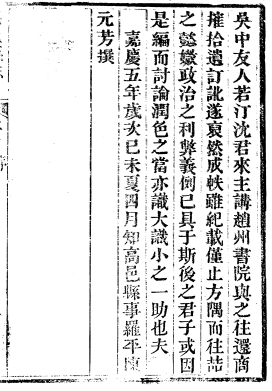 吳中友人若汀沈君來主講趙州書院與之往還商
搉拾遺訂訛遂裒然成帙雖紀載僅止方隅而往喆
之懿嫩政治之利弊義例已具于斯後之君子或因
是編而討論潤色之當亦識大識小之一助也夫
嘉慶五年歲次己未夏四月知高邑縣事羅平陳
元芳撰